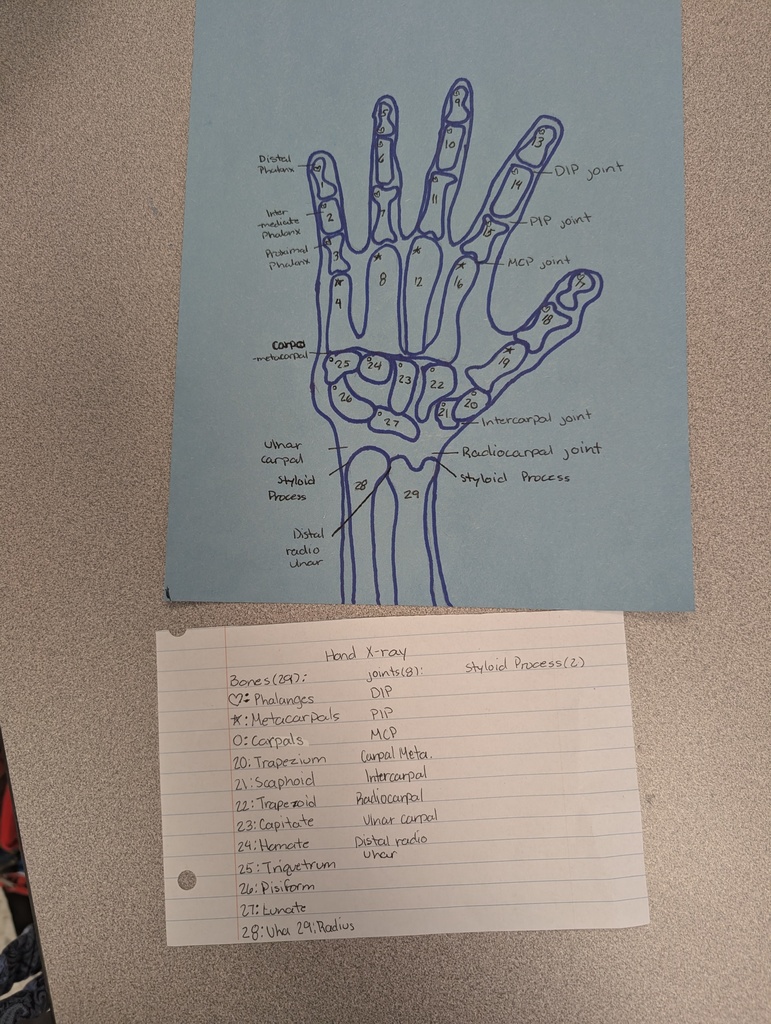 5
9
13
Distal
Phalanx
1
6
10
DIP joint
14
Inter
mediate
Phalanx
2
7
11
PIP joint
15
Proximal
Phalanx
3
MCP joint
4
8
12
16
17
18
19
Carpo
-metacarpal
25
24
23
22
26
27
21
20
Intercarpal joint
Ulnar
carpal
Radiocarpal joint
Styloid
Process
Styloid Process
28
29
Distal
radio
ulnar
Hand X-ray
Bones(29):
♡: Phalanges
*: Metacarpals
O: Carpals
20: Trapezium
21: Scaphoid
22: Trapezoid
23: Capitate
24: Hamate
25: Triquetrum
26: Pisiform
27: Lunate
28: Ulna 29: Radius
joints(8):
DIP
PIP
MCP
Carpal Meta.
Intercarpal
Radiocarpal
Ulnar carpal
Distal radio
ulnar
Styloid Process(2)